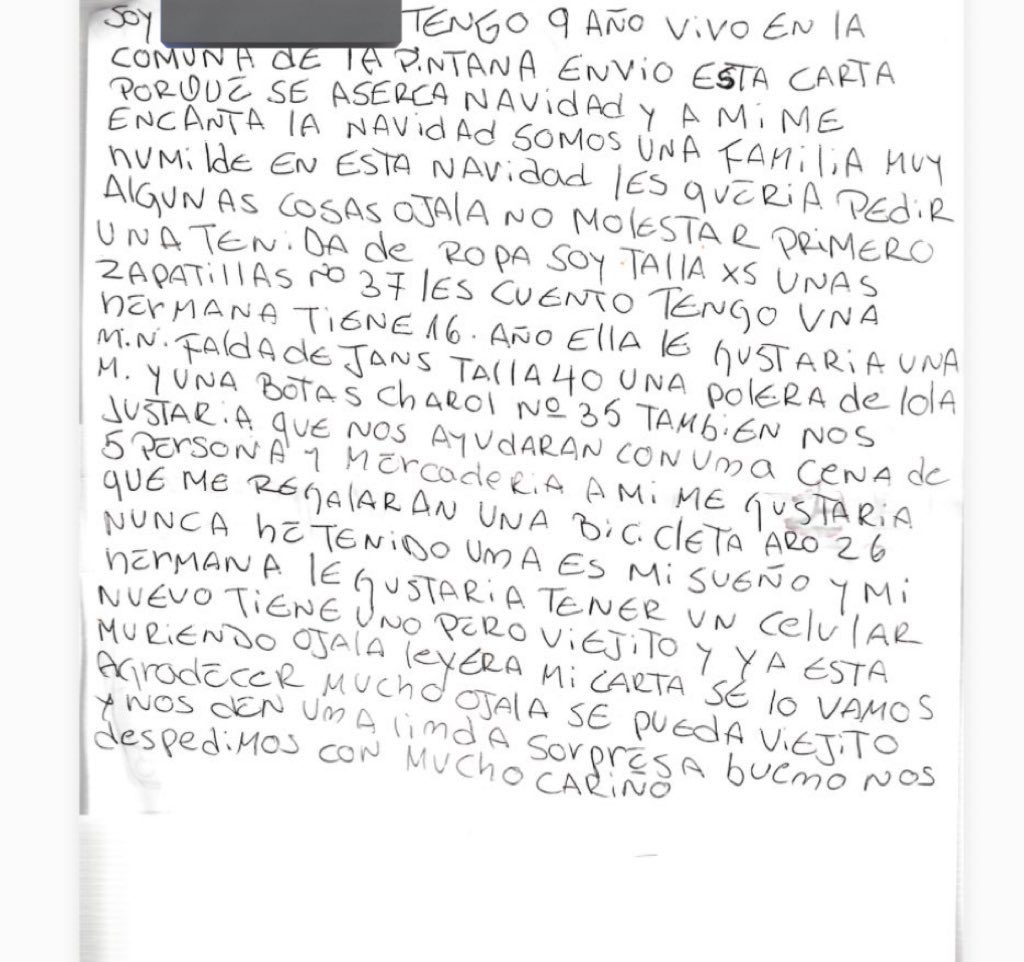 SOY TENGO 9 AÑO VIVO EN LA
COMUNA DE LA PINTANA ENVIO ESTA CARTA
PORQUE SE ASERCA NAVIDAD Y A MI ME
ENCANTA LA NAVIDAD SOMOS UNA FAMILIA MUY
HUMILDE EN ESTA NAVIDAD LES QUERIA PEDIR
ALGUNAS COSAS OJALA NO MOLESTAR PRIMERO
UNA TENIDA de ROPA SOY TALLA XS UNAS
ZAPATILLAS Nº 37 LES CUENTO TENGO UNA
HERMANA TIENE 16. AÑO ELLA LE GUSTARIA UNA
M.N. FALDA DE JANS TALLA 40 UNA POLERA de LOLA
M. Y UNA BOTAS CHAROL Nº 35 TAMBIEN NOS
JUSTARIA QUE NOS AYUDARAN CON UMA CENA de
5 PERSONA Y MERCADERIA A MI ME GUSTARIA
QUE ME REGALARAN UNA BICICLETA ARO 26
NUNCA HE TENIDO UMA ES MI SUEÑO Y MI
HERMANA LE GUSTARIA TENER UN CELULAR
NUEVO TIENE UNO PERO VIEJITO Y YA ESTA
MURIENDO OJALA LEYERA MI CARTA SE LO VAMOS
AGRODECER MUCHO OJALA SE PUEDA VIEJITO
Y NOS DEN UMA LIMDA SORPRESA BUEMO NOS
DESPEDIMOS CON MUCHO CARIÑO